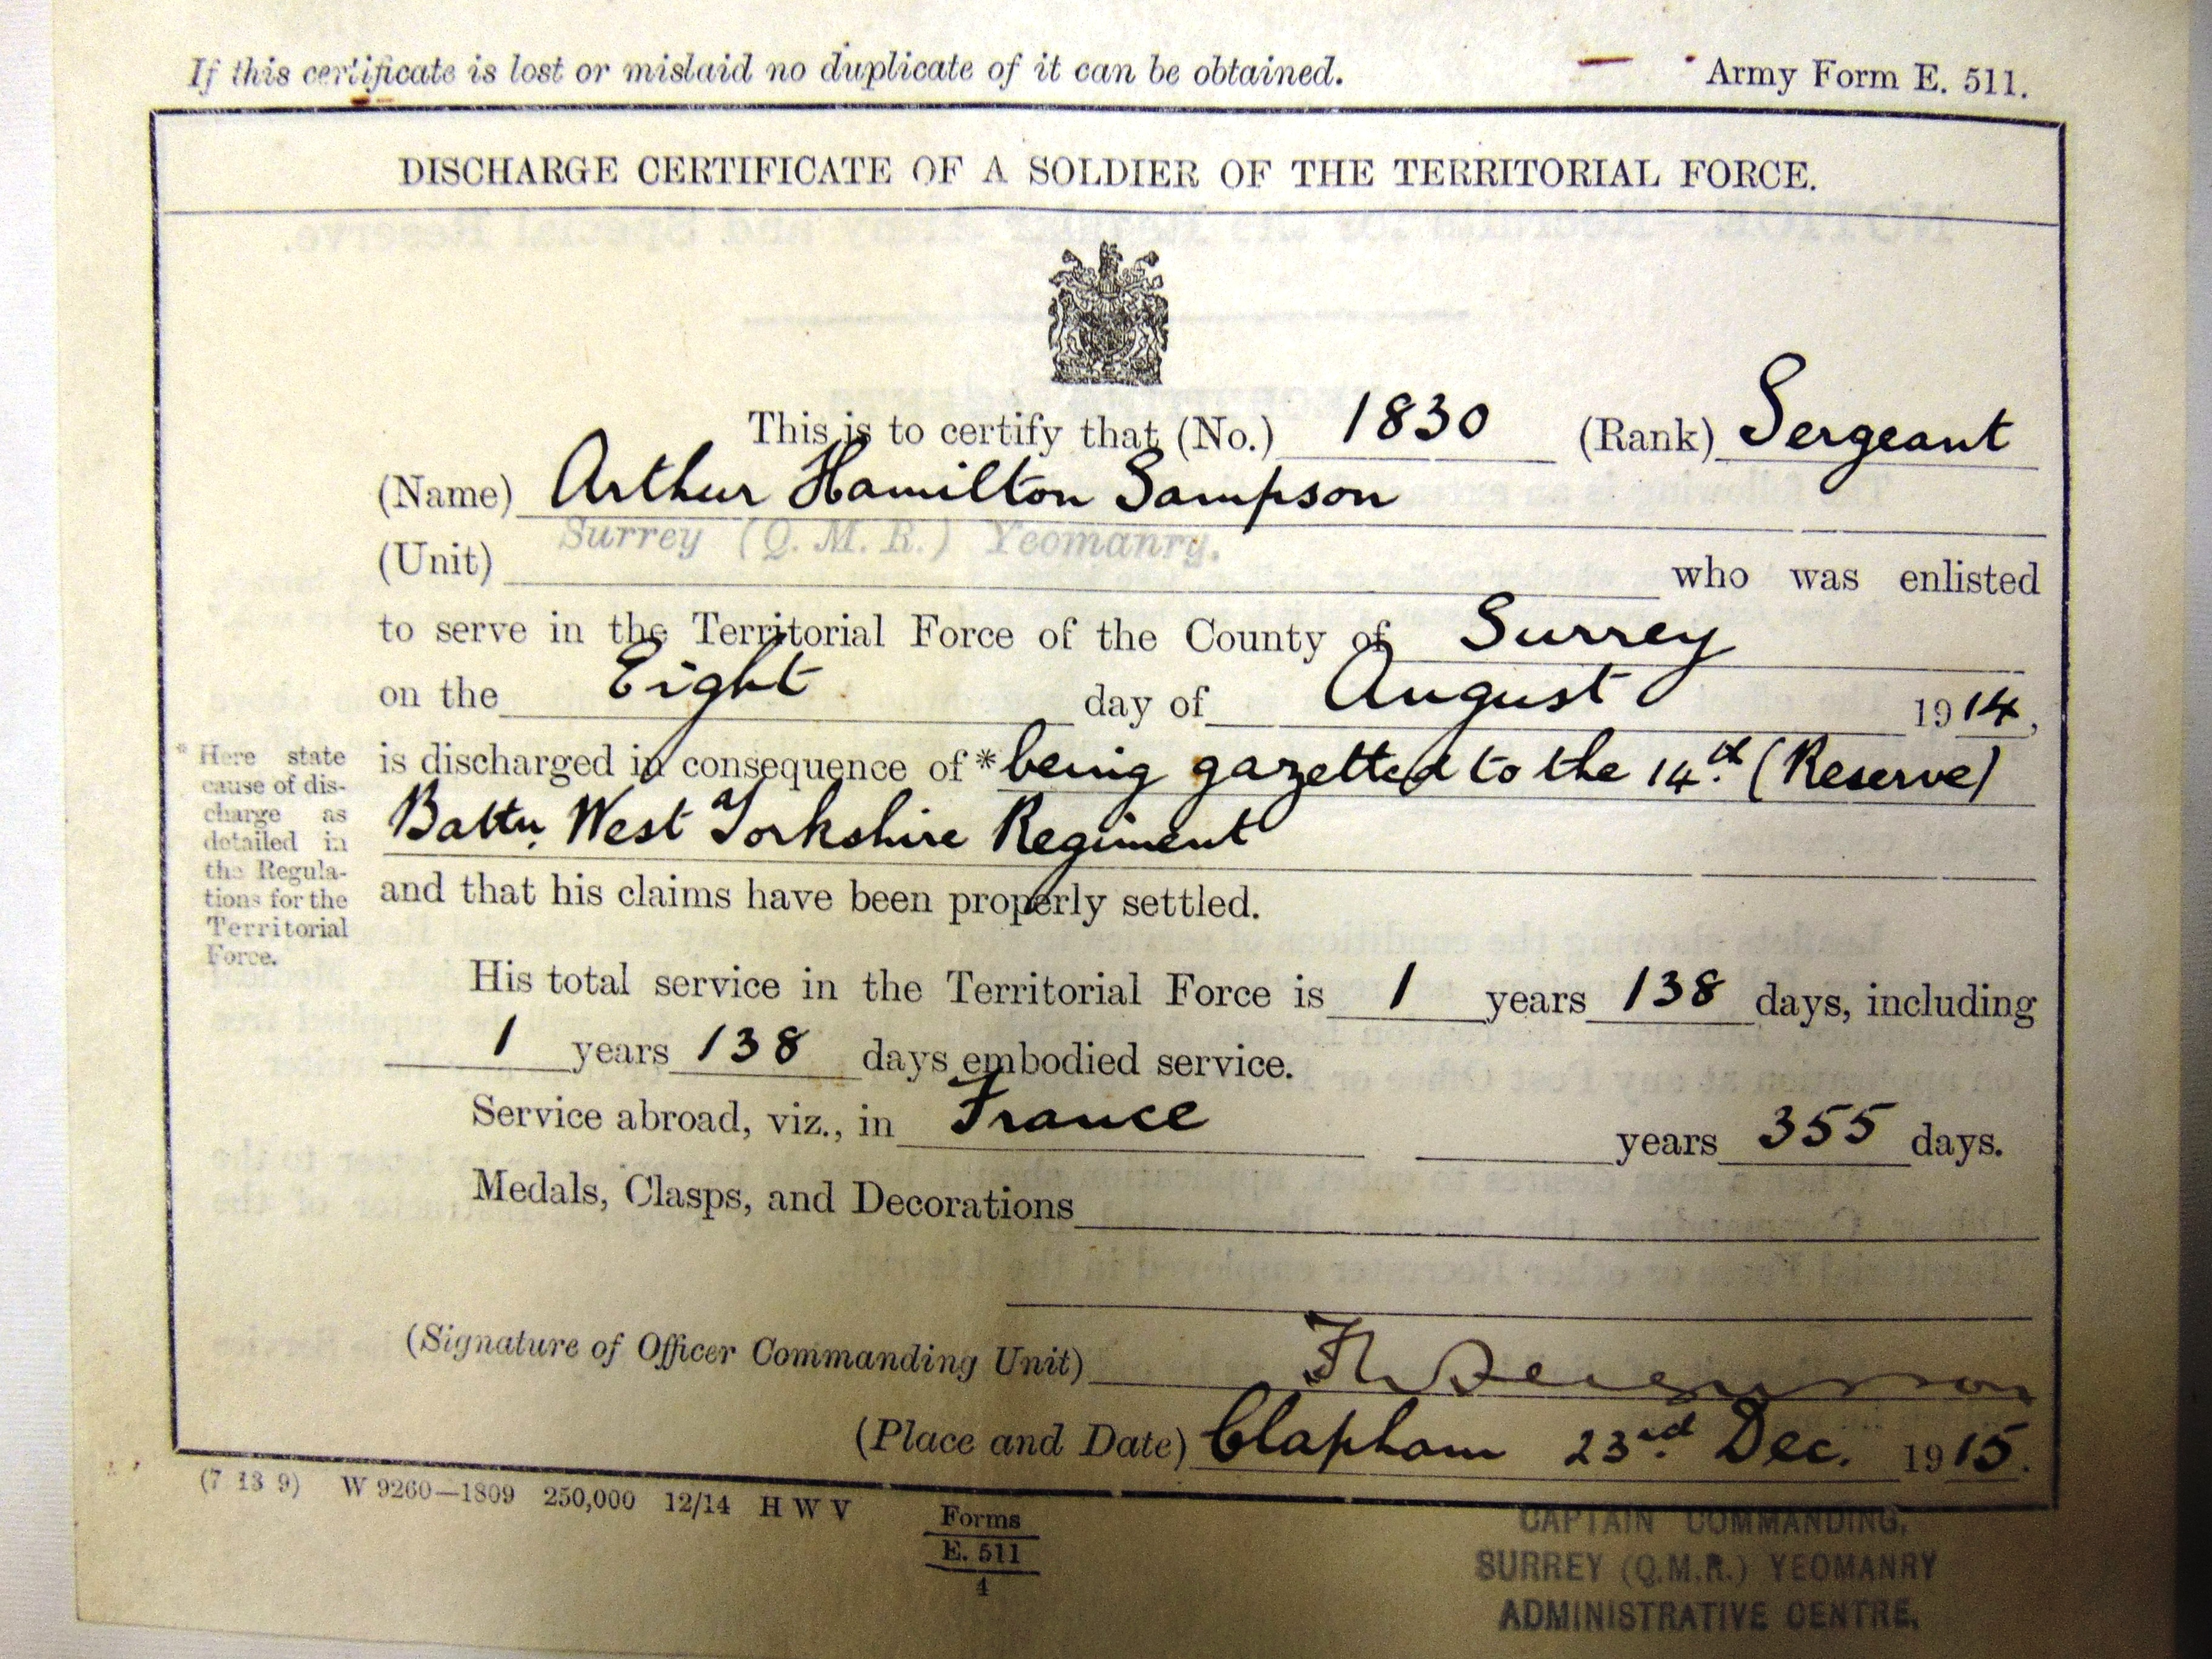 If this certificate is lost or mislaid no duplicate of it can be obtained. Army Form E. 511.
DISCHARGE CERTIFICATE OF A SOLDIER OF THE TERRITORIAL FORCE.
This is to certify that (No.) 1830 (Rank) Sergeant
(Name) Arthur Hamilton Sampson
(Unit) Surrey (Q. M. R.) Yeomanry. who was enlisted
to serve in the Territorial Force of the County of Surrey
on the Eight day of August 1914,
is discharged in consequence of * being gazetted to the 14th (Reserve)
Battn. West Yorkshire Regiment
* Here state
cause of dis-
charge as
detailed in
the Regula-
tions for the
Territorial
Force.
and that his claims have been properly settled.
His total service in the Territorial Force is 1 years 138 days, including
1 years 138 days embodied service.
Service abroad, viz., in France years 355 days.
Medals, Clasps, and Decorations
(Signature of Officer Commanding Unit)
(Place and Date) Clapham 23rd. Dec. 1915.
(7 13 9) W 9260—1809 250,000 12/14 H W V
Forms
E. 511
4
CAPTAIN COMMANDING,
SURREY (Q.M.R.) YEOMANRY
ADMINISTRATIVE CENTRE.